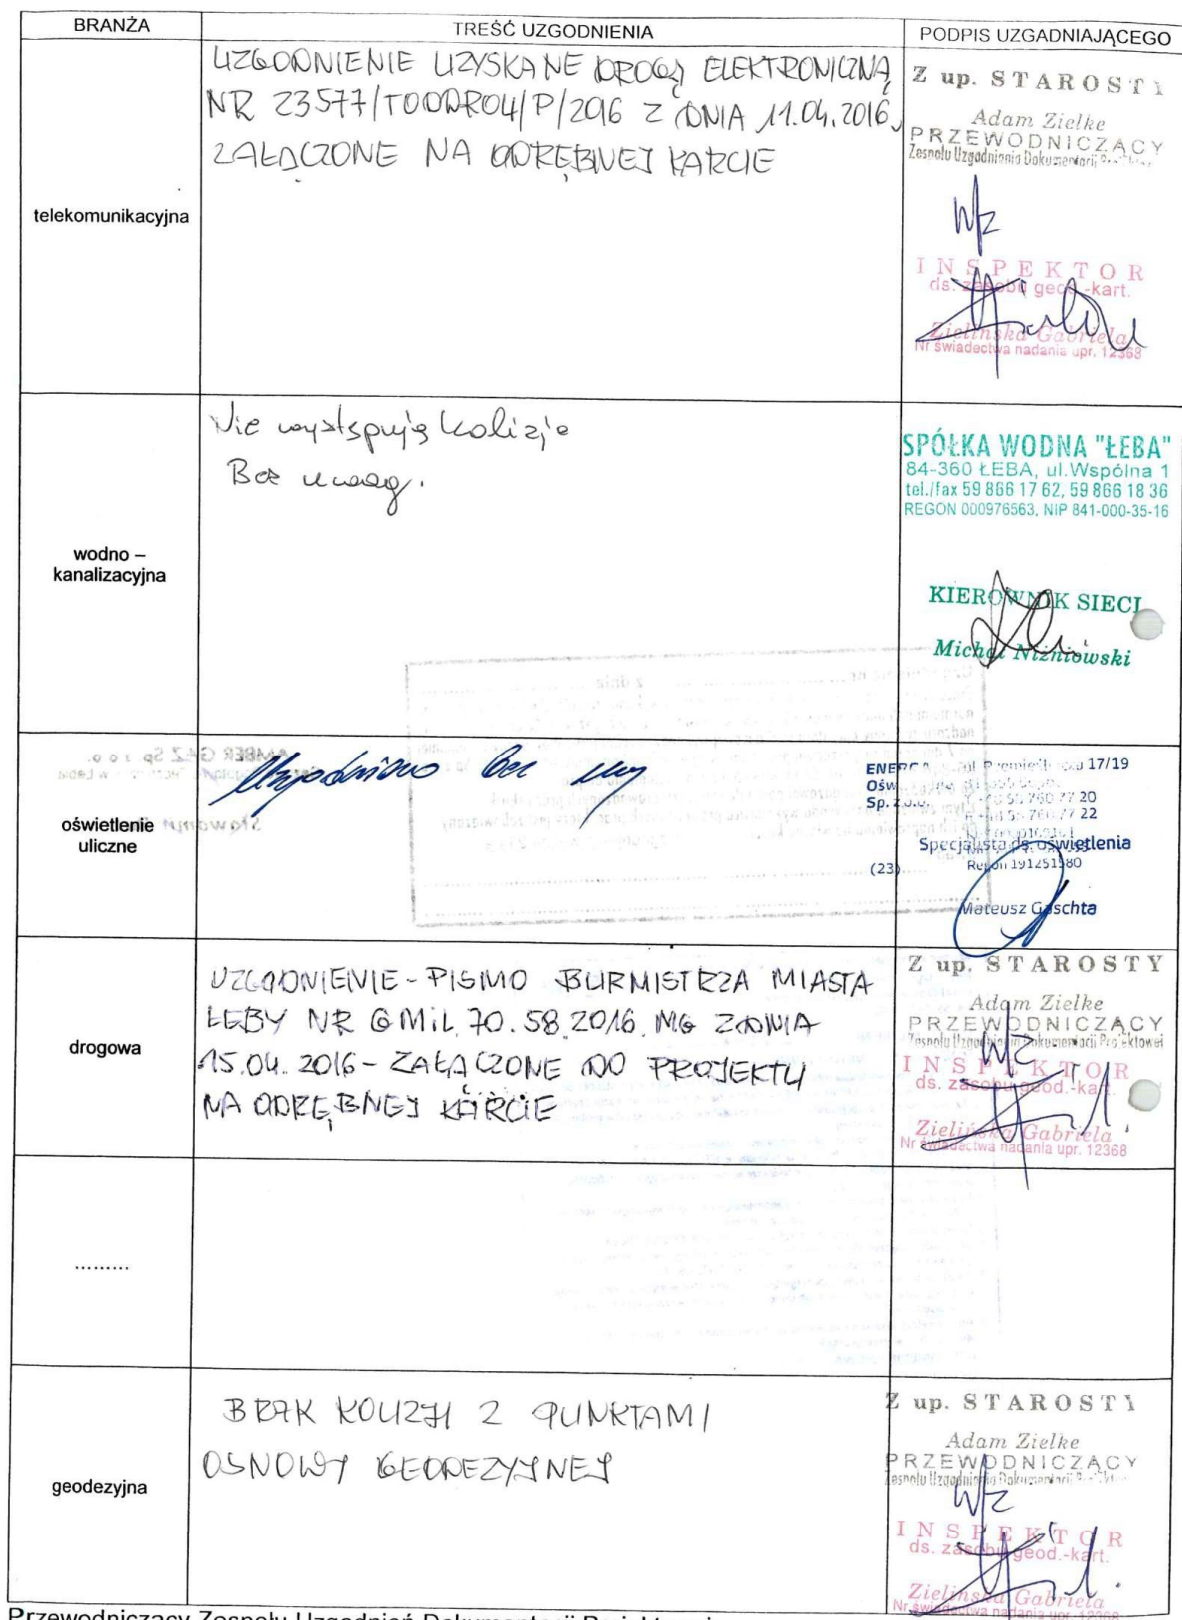 BRANŻA
TREŚĆ UZGODNIENIA
PODPIS UZGADNIAJĄCEGO
telekomunikacyjna
UZGODNIENIE UZYSKANE DROGĄ ELEKTRONICZNĄ
NR 23577/TODDRO4/P/2016 Z DNIA 11.04.2016,
ZAŁĄCZONE NA ODRĘBNEJ KARCIE
Z up. STAROSTY
Adam Zielke
PRZEWODNICZĄCY
Zespołu Uzgadniania Dokumentacji
wz
INSPEKTOR
ds. zasobu geod.-kart.
Zielińska Gabriela
Nr świadectwa nadania upr. 12368
wodno –
kanalizacyjna
Nie występują kolizje
Bez uwag.
SPÓŁKA WODNA "ŁEBA"
84-360 ŁEBA, ul.Wspólna 1
tel./fax 59 866 17 62, 59 866 18 36
REGON 000976563, NIP 841-000-35-16
KIEROWNIK SIECI
Michał Niżniowski
oświetlenie
uliczne
Uzgodniono bez uwag
ENERGA
17/19
Sp. z o.o.
760 77 20
760 77 22
Specjalista ds. oświetlenia
Regon 191251580
(23)
Mateusz Gaschta
drogowa
UZGODNIENIE - PISMO BURMISTRZA MIASTA
ŁEBY NR GMiL.70.58.2016.MG Z DNIA
15.04.2016 - ZAŁĄCZONE DO PROJEKTU
NA ODRĘBNEJ KARCIE
Z up. STAROSTY
Adam Zielke
PRZEWODNICZĄCY
Zespołu Uzgadniania Dokumentacji Projektowej
wz
INSPEKTOR
ds. zasobu geod.-kart.
Zielińska Gabriela
Nr świadectwa nadania upr. 12368
.........
geodezyjna
BRAK KOLIZJI Z PUNKTAMI
OSNOWY GEODEZYJNEJ
Z up. STAROSTY
Adam Zielke
PRZEWODNICZĄCY
Zespołu Uzgadniania Dokumentacji
wz
INSPEKTOR
ds. zasobu geod.-kart.
Zielińska Gabriela
Nr świadectwa nadania upr. 12368
Przewodniczący Zespołu Uzgodnień Dokumentacji Projektowej